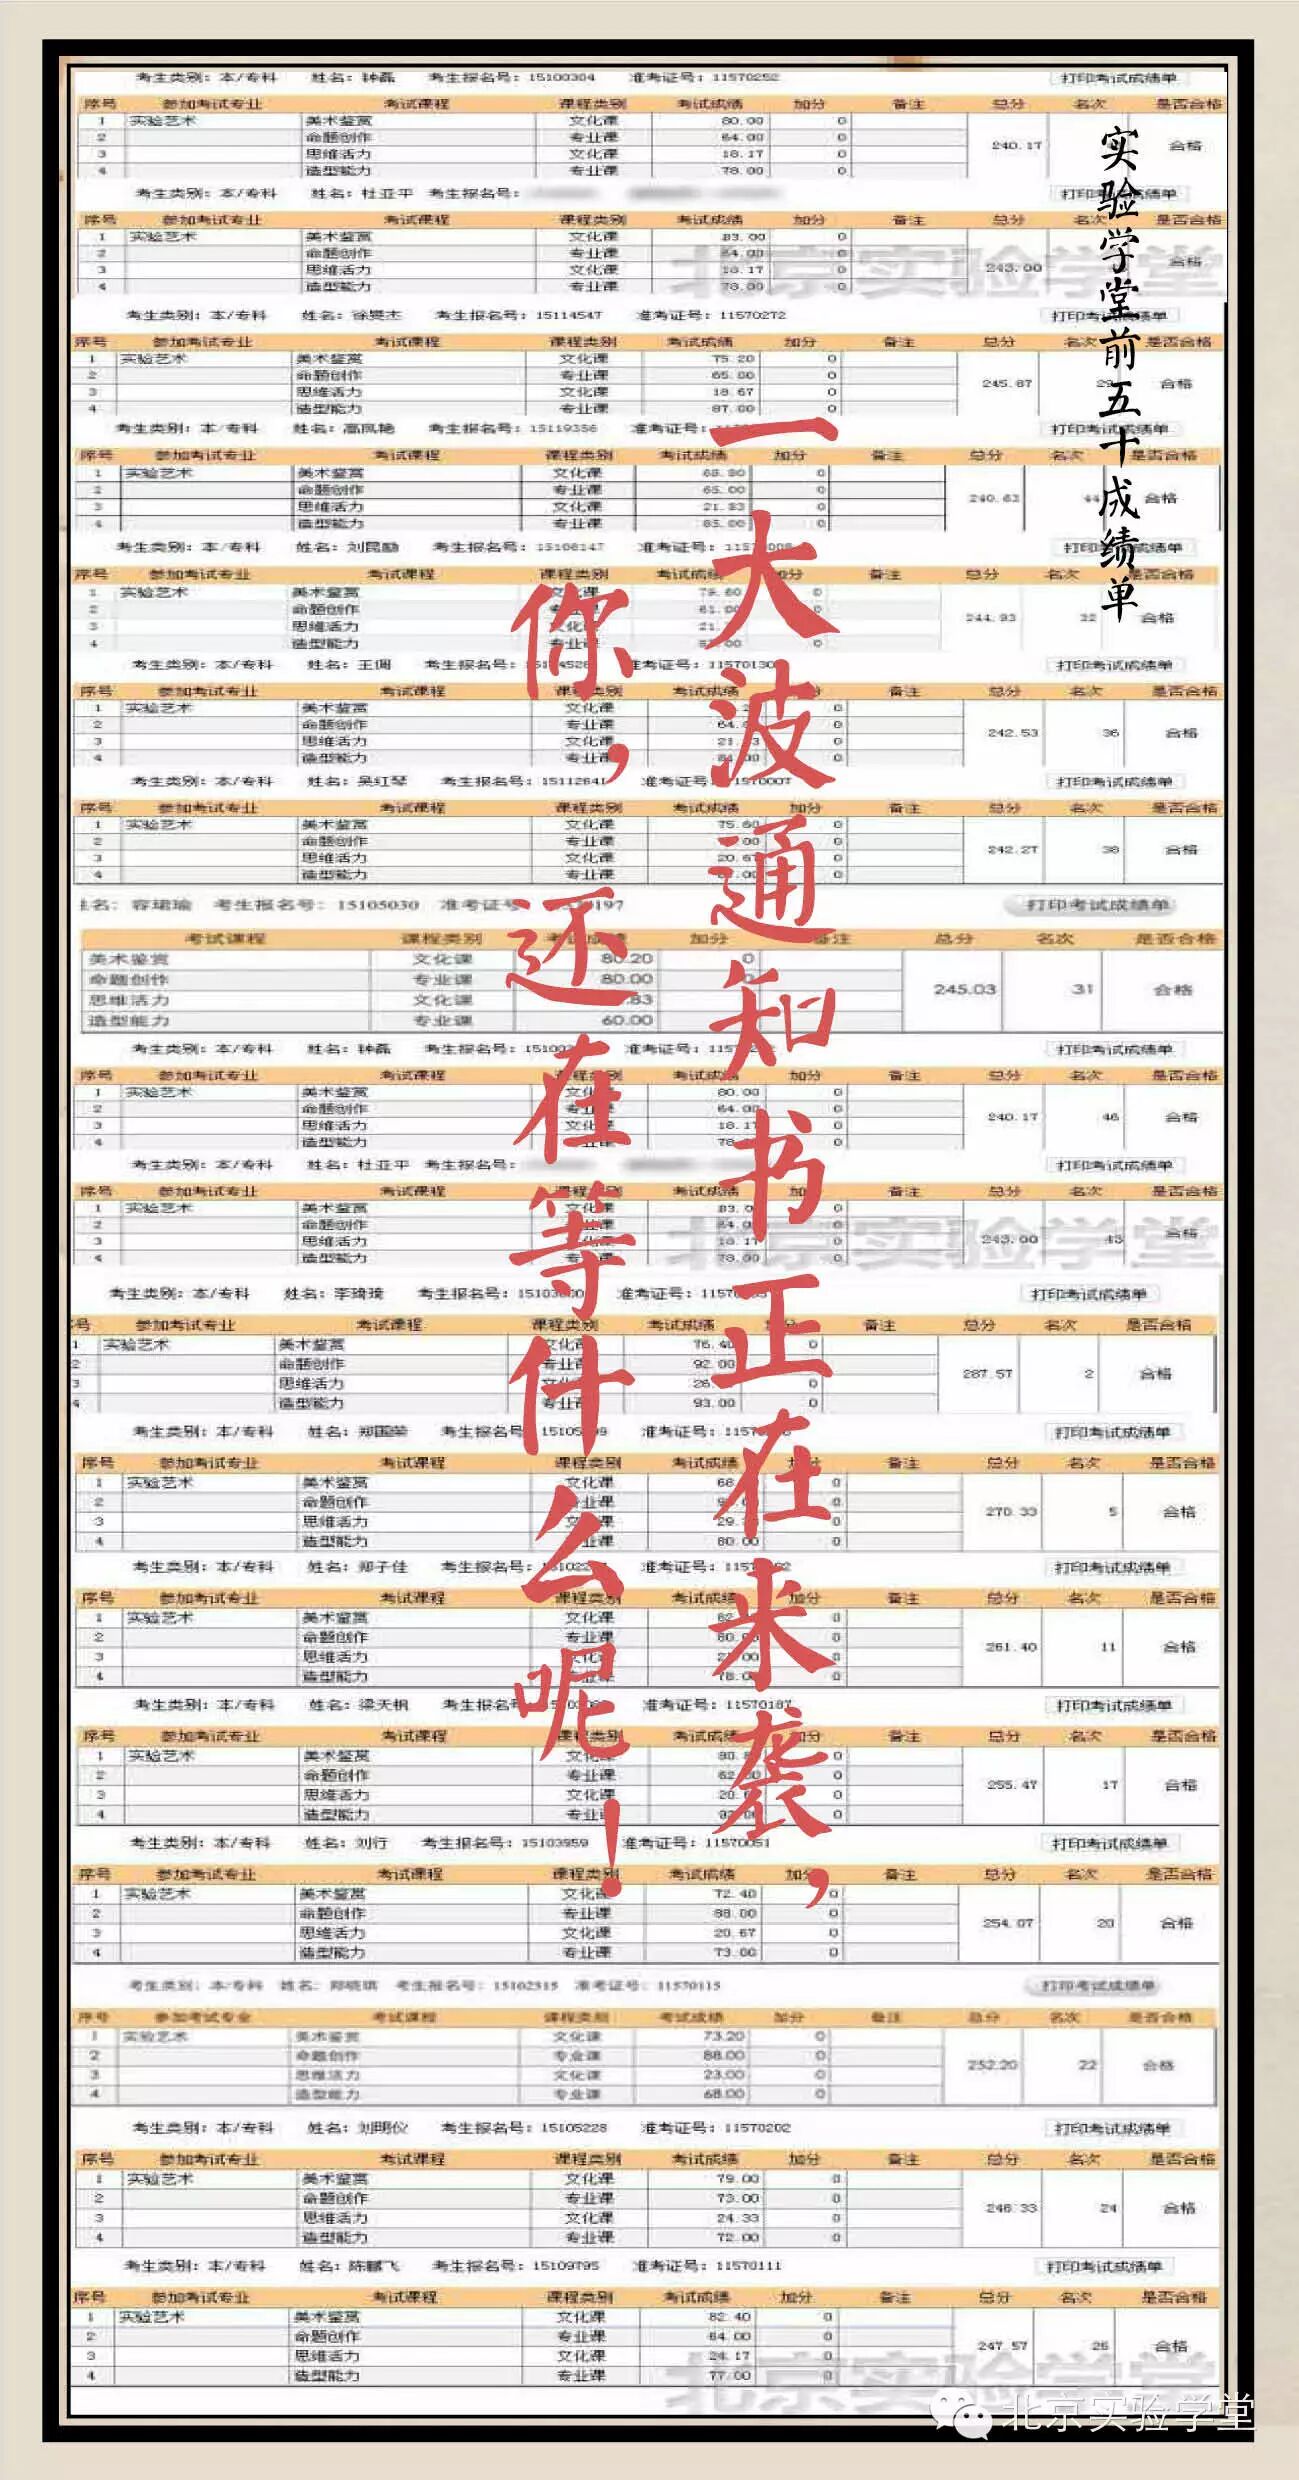 实验学堂前五十成绩单
一大波通知书正在来袭，
你，还在等什么呢！
考生类别：本/专科 姓名：钟磊 考生报名号：15100304 准考证号：11570252 打印考试成绩单
序号 参加考试专业 考试课程 课程类别 考试成绩 加分 备注 总分 名次 是否合格
1 实验艺术 美术鉴赏 文化课 80.00 0
2 命题创作 专业课 64.00 0
3 思维活力 文化课 18.17 0
4 造型能力 专业课 78.00 0
240.17 合格
考生类别：本/专科 姓名：杜亚平 考生报名号：
序号 参加考试专业 考试课程 课程类别 考试成绩 加分 备注 总分 名次 是否合格
1 实验艺术 美术鉴赏 文化课 83.00 0
2 命题创作 专业课 64.00 0
3 思维活力 文化课 18.17 0
4 造型能力 专业课 78.00 0
243.00 合格
北京实验学堂
考生类别：本/专科 姓名：徐 杰 考生报名号：15114547 准考证号：11570272
序号 参加考试专业 考试课程 课程类别 考试成绩 加分 备注 总分 名次 是否合格
1 实验艺术 美术鉴赏 文化课 75.20 0
2 命题创作 专业课 65.00 0
3 思维活力 文化课 18.67 0
4 造型能力 专业课 87.00 0
245.87 合格
考生类别：本/专科 姓名：高凤艳 考生报名号：15119356
序号 参加考试专业 考试课程 课程类别 考试成绩 加分 备注 总分 名次 是否合格
1 实验艺术 美术鉴赏 文化课 0
2 命题创作 专业课 65.00 0
3 思维活力 文化课 21.83 0
4 造型能力 专业课 85.00 0
240.63 44 合格
考生类别：本/专科 考生报名号：15106147
序号 参加考试专业 考试课程 课程类别 考试成绩 备注 总分 名次 是否合格
1 实验艺术 美术鉴赏 79.60 0
2 命题创作 61.00 0
3 思维活力 0
4 造型能力 0
244.93 32 合格
考生类别：本/专科 考生报名号： 打印考试成绩单
序号 参加考试专业 考试课程 课程类别 考试成绩 备注 总分 名次 是否合格
1 实验艺术 美术鉴赏 文化课 0
2 命题创作 专业课 0
3 思维活力 文化课 0
4 造型能力 0
242.53 36 合格
考生类别：本/专科 姓名：吴红琴 考生报名号：15112641 打印考试成绩单
序号 参加考试专业 考试课程 课程类别 考试成绩 加分 备注 总分 名次 是否合格
1 实验艺术 美术鉴赏 文化课 75.60 0
2 命题创作 专业课 0
3 思维活力 文化课 20.67 0
4 造型能力 专业课 0
242.27 38 合格
姓名：容珺瑜 考生报名号：15105030 准考证号 打印考试成绩单
考试课程 课程类别 加分 备注 总分 名次 是否合格
美术鉴赏 文化课 80.20 0
命题创作 专业课 80.00 0
思维活力 文化课
造型能力 专业课 60.00
245.03 31 合格
考生类别：本/专科 姓名：钟磊 考生报名号： 打印考试成绩单
序号 参加考试专业 考试课程 课程类别 考试成绩 加分 备注 总分 名次 是否合格
1 实验艺术 美术鉴赏 80.00 0
2 命题创作 64.00 0
3 思维活力 18.17 0
4 造型能力 0
240.17 46 合格
考生类别：本/专科 姓名：杜亚平 考生报名号： 打印考试成绩单
序号 参加考试专业 考试课程 考试成绩 加分 备注 总分 名次 是否合格
1 实验艺术 美术鉴赏 83.00 0
2 命题创作 64.00 0
3 思维活力 18.17 0
4 造型能力 78.00 0
243.00 43 合格
北京实验学堂
考生类别：本/专科 姓名：李琦琦 考生报名号： 打印考试成绩单
序号 参加考试专业 考试课程 课程类别 考试成绩 备注 总分 名次 是否合格
1 实验艺术 美术鉴赏 76.40 0
2 命题创作 92.00 0
3 思维活力 0
4 造型能力 93.00 0
287.57 2 合格
考生类别：本/专科 姓名：郑国荣 考生报名号： 打印考试成绩单
序号 参加考试专业 考试课程 课程类别 考试成绩 加分 备注 总分 名次 是否合格
1 实验艺术 美术鉴赏 文化课 0
2 命题创作 专业课 0
3 思维活力 0
4 造型能力 80.00 0
270.33 5 合格
考生类别：本/专科 姓名：郑子佳 考生报名号： 打印考试成绩单
序号 参加考试专业 考试课程 课程类别 考试成绩 加分 备注 总分 名次 是否合格
1 实验艺术 美术鉴赏 文化课 0
2 命题创作 专业课 0
3 思维活力 文化课 0
4 造型能力 78.00 0
261.40 11 合格
考生类别：本/专科 姓名：梁天枫 考生报名号： 准考证号：11570187 打印考试成绩单
序号 参加考试专业 考试课程 课程类别 考试成绩 加分 备注 总分 名次 是否合格
1 实验艺术 美术鉴赏 0
2 命题创作 专业课 0
3 思维活力 文化课 0
4 造型能力 专业课 0
255.47 17 合格
考生类别：本/专科 姓名：刘行 考生报名号：15103959 准考证号：11570051 打印考试成绩单
序号 参加考试专业 考试课程 课程类别 考试成绩 加分 备注 总分 名次 是否合格
1 实验艺术 美术鉴赏 文化课 72.40 0
2 命题创作 专业课 88.00 0
3 思维活力 文化课 20.67 0
4 造型能力 专业课 73.00 0
254.07 20 合格
考生类别：本/专科 姓名：郑晓琪 考生报名号：15102315 准考证号：11570115 打印考试成绩单
序号 参加考试专业 考试课程 课程类别 考试成绩 加分 备注 总分 名次 是否合格
1 实验艺术 美术鉴赏 文化课 73.20 0
2 命题创作 专业课 88.00 0
3 思维活力 文化课 23.00 0
4 造型能力 专业课 68.00 0
252.20 22 合格
考生类别：本/专科 姓名：刘明仪 考生报名号：15105228 准考证号：11570202 打印考试成绩单
序号 参加考试专业 考试课程 课程类别 考试成绩 加分 备注 总分 名次 是否合格
1 实验艺术 美术鉴赏 文化课 79.00 0
2 命题创作 专业课 73.00 0
3 思维活力 文化课 24.33 0
4 造型能力 专业课 72.00 0
248.33 24 合格
考生类别：本/专科 姓名：陈鹏飞 考生报名号：15109795 准考证号：11570111 打印考试成绩单
序号 参加考试专业 考试课程 课程类别 考试成绩 加分 备注 总分 名次 是否合格
1 实验艺术 美术鉴赏 文化课 82.40 0
2 命题创作 专业课 64.00 0
3 思维活力 文化课 24.17 0
4 造型能力 专业课 77.00 0
247.57 26 合格
北京实验学堂
北京实验学堂